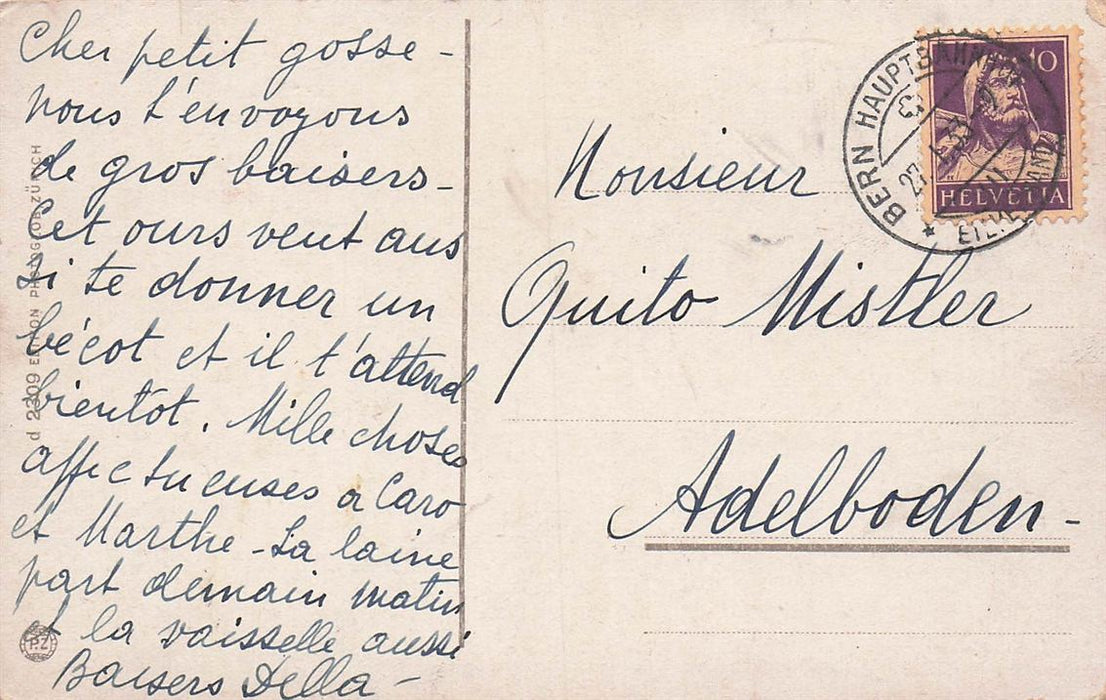 Cher petit gosse -
nous t'envoyons
de gros baisers -
Cet ours veut aus
si te donner un
bécot et il t'attend
bientôt. Mille choses
affectueuses à Caro
et Marthe - La laine
part demain matin
et la vaisselle aussi
Baisers Della -
d 2309 EDITION PHOTOGLOB ZÜRICH
P.Z
Monsieur
Quito Mistler
Adelboden -
BERN HAUPTBAHNHOF
10
HELVETIA